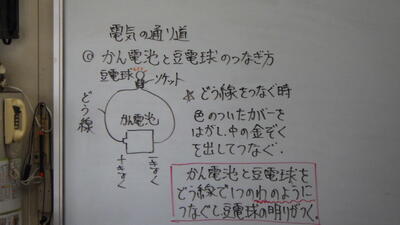 電気の通り道
◎かん電池と豆電球のつなぎ方
豆電球
ソケット
どう線
かん電池
＋きょく
－きょく
☆どう線をつなぐ時
色のついたカバーを
はがし、中の金ぞく
を出してつなぐ。
かん電池と豆電球を
どう線で1つのわのように
つなぐと、豆電球の明りがつく。